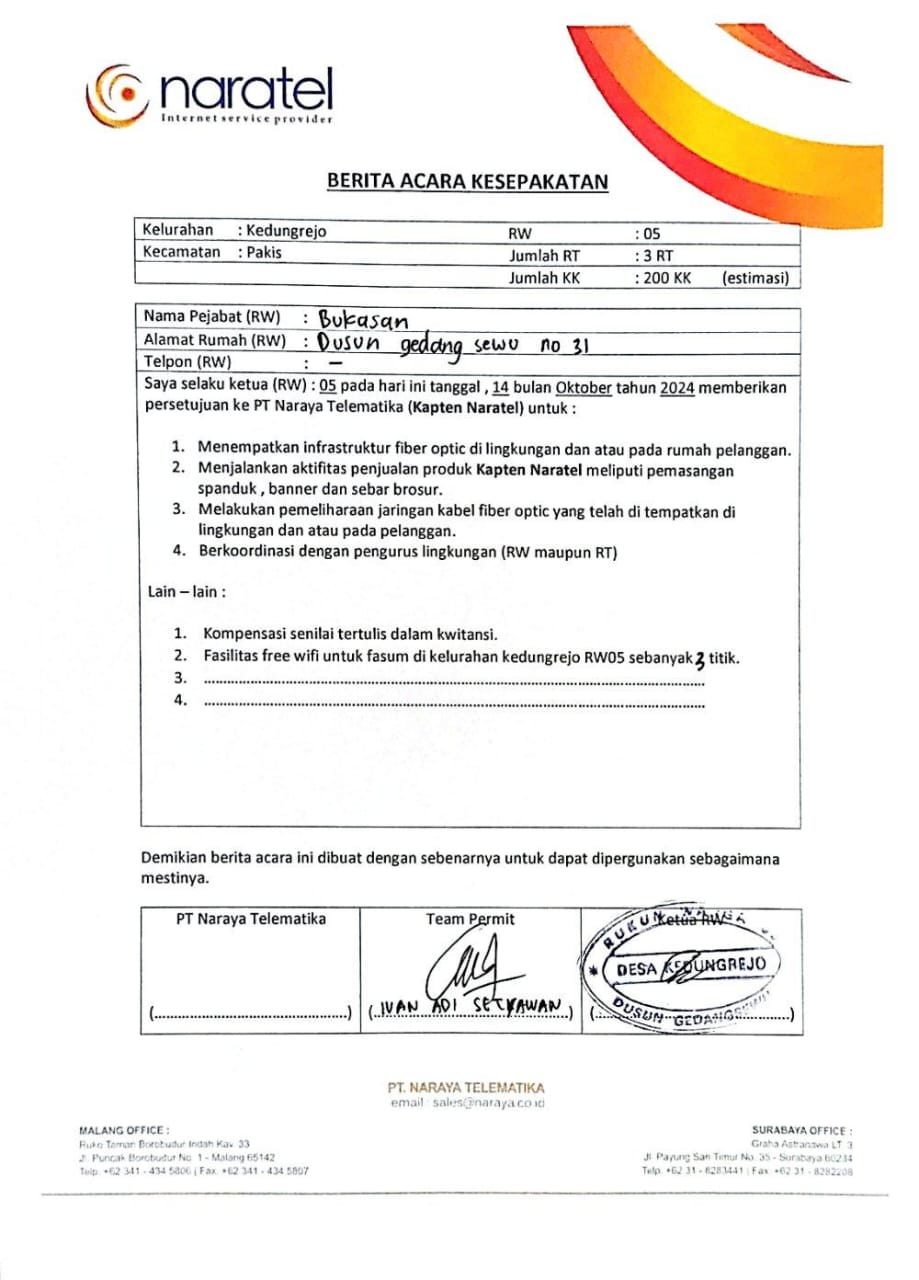 naratel
Internet service provider
BERITA ACARA KESEPAKATAN
Kelurahan : Kedungrejo RW : 05
Kecamatan : Pakis Jumlah RT : 3 RT
Jumlah KK : 200 KK (estimasi)
Nama Pejabat (RW) : Bukasan
Alamat Rumah (RW) : Dusun gedang sewu no 31
Telpon (RW) : –
Saya selaku ketua (RW) : 05 pada hari ini tanggal , 14 bulan Oktober tahun 2024 memberikan
persetujuan ke PT Naraya Telematika (Kapten Naratel) untuk :
1. Menempatkan infrastruktur fiber optic di lingkungan dan atau pada rumah pelanggan.
2. Menjalankan aktifitas penjualan produk Kapten Naratel meliputi pemasangan
spanduk , banner dan sebar brosur.
3. Melakukan pemeliharaan jaringan kabel fiber optic yang telah di tempatkan di
lingkungan dan atau pada pelanggan.
4. Berkoordinasi dengan pengurus lingkungan (RW maupun RT)
Lain – lain :
1. Kompensasi senilai tertulis dalam kwitansi.
2. Fasilitas free wifi untuk fasum di kelurahan kedungrejo RW05 sebanyak 3 titik.
3. ....................
4. ....................
Demikian berita acara ini dibuat dengan sebenarnya untuk dapat dipergunakan sebagaimana
mestinya.
PT Naraya Telematika Team Permit Ketua RW
RUKUN
DESA KEDUNGREJO
(....................) (IVAN ADI SETYAWAN) (....................)
DUSUN GEDANGSEWU
PT. NARAYA TELEMATIKA
email : sales@naraya.co.id
MALANG OFFICE : SURABAYA OFFICE :
Ruko Taman Borobudur Indah Kav. 33 Graha Astranawa LT. 3
Jl. Puncak Borobudur No. 1 - Malang 65142 Jl. Payung San Timur No. 35 - Surabaya 60234
Telp. +62 341 - 434 5806 | Fax. +62 341 - 434 5807 Telp. +62 31 - 8283441 | Fax. +62 31 - 8282208